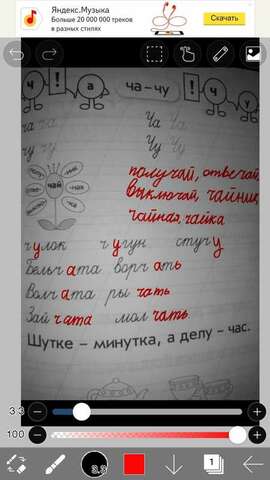 Яндекс.Музыка
Больше 20 000 000 треков
в разных стилях
Скачать
ч ! а ча – чу ! ч у
ча ча Ча Ча
чу чу Чу Чу
чай
получай, отвечай,
выключай, чайник,
чайная, чайка
чулок чугун стучу
Бельчата ворчать
Волчата рычать
Зайчата молчать.
Шутке – минутка, а делу – час.
3.3
100
3.3
1